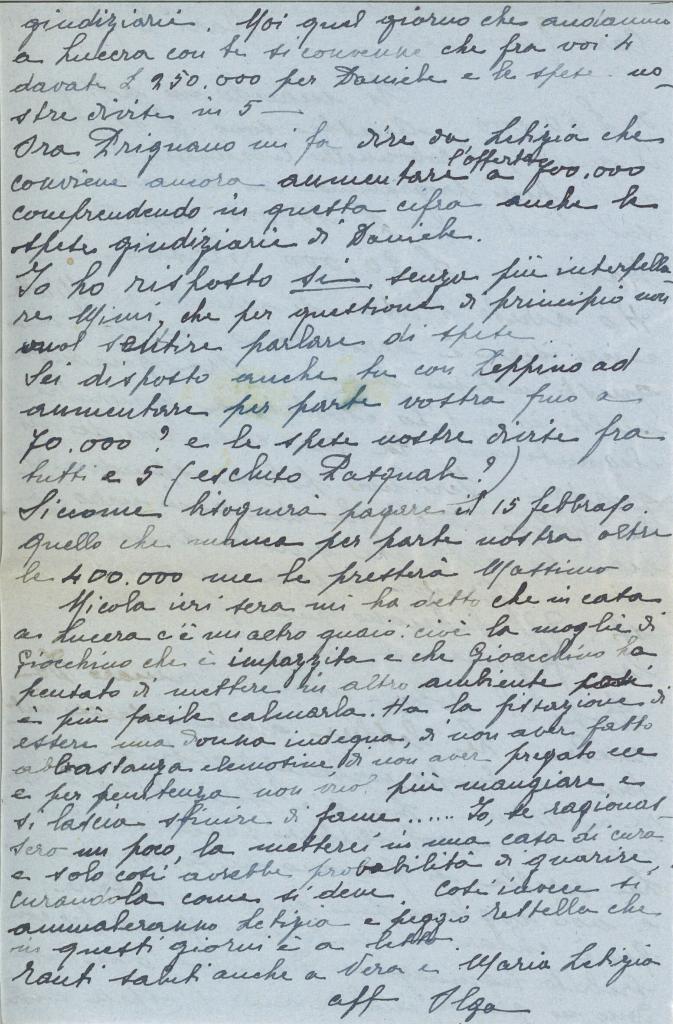 giudiziarie. Noi quel giorno che andammo
a Lucera con te si convenne che fra voi 4
davate £ 250.000 per Daniele e le spese no-
stre divise in 5 —
Ora Prignano mi fa dire da Letizia che
conviene ancora aumentare l'offerta a 700.000
comprendendo in questa cifra anche le
spese giudiziarie di Daniele.
Io ho risposto si senza più interpella-
re Mimì, che per questione di principio non
vuol sentire parlare di spese
Sei disposto anche tu con Peppino ad
aumentare per parte vostra fino a
70.000? e le spese nostre divise fra
tutti e 5 (escluso Pasquale?)
Siccome bisognerà pagare il 15 febbraio.
quello che manca per parte nostra oltre
le 400.000 me le presterà Massimo
Nicola ieri sera mi ha detto che in casa
a Lucera c'è un altro guaio: cioè la moglie di
Giocchino che è impazzita e che Gioacchino ha
pensato di mettere in altro ambiente
è più facile calmarla. Ha la fissazione di
essere una donna indegna, di non aver fatto
abbastanza elemosine di non aver pregato ecc
e per penitenza non vuol più mangiare e
si lascia sfinire di fame...... Io, se ragionas-
sero un poco, la metterei in una casa di cura
e solo così avrebbe probabilità di guarire,
curandola come si deve. Così invece si
ammaleranno Letizia e peggio che
in questi giorni è a letto.
Tanti saluti anche a Vera e Maria Letizia
aff Olga